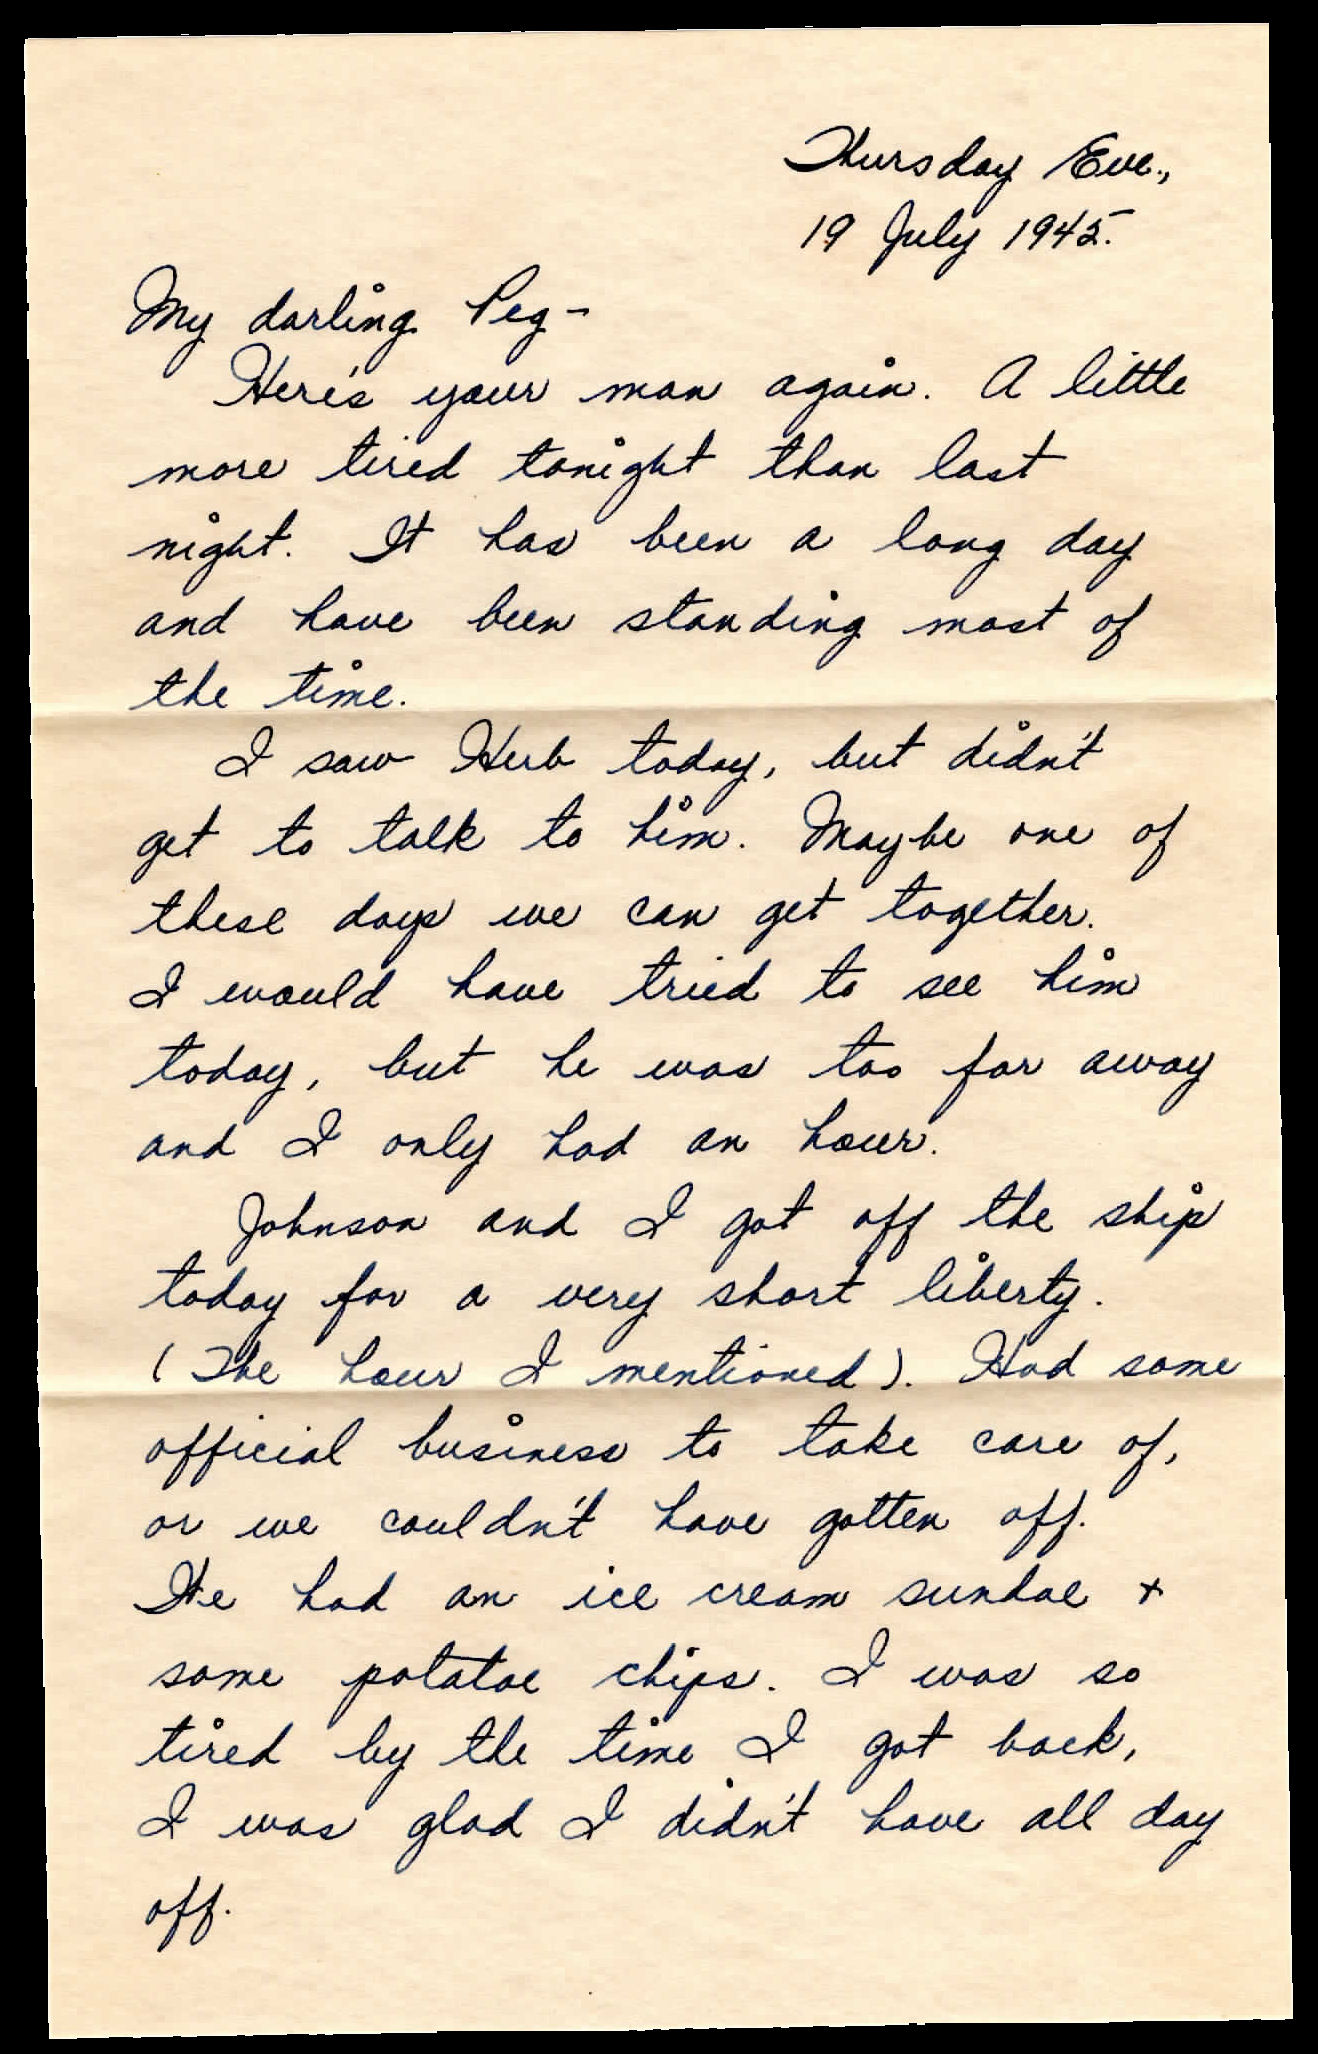 Thursday Eve.,
19 July 1945.
My darling Peg-
Here's your man again. A little
more tired tonight than last
night. It has been a long day
and have been standing most of
the time.
I saw Herb today, but didn't
get to talk to him. Maybe one of
these days we can get together.
I would have tried to see him
today, but he was too far away
and I only had an hour.
Johnson and I got off the ship
today for a very short liberty.
(The hour I mentioned). Had some
official business to take care of,
or we couldn't have gotten off.
He had an ice cream sundae +
some potatoe chips. I was so
tired by the time I got back,
I was glad I didn't have all day
off.